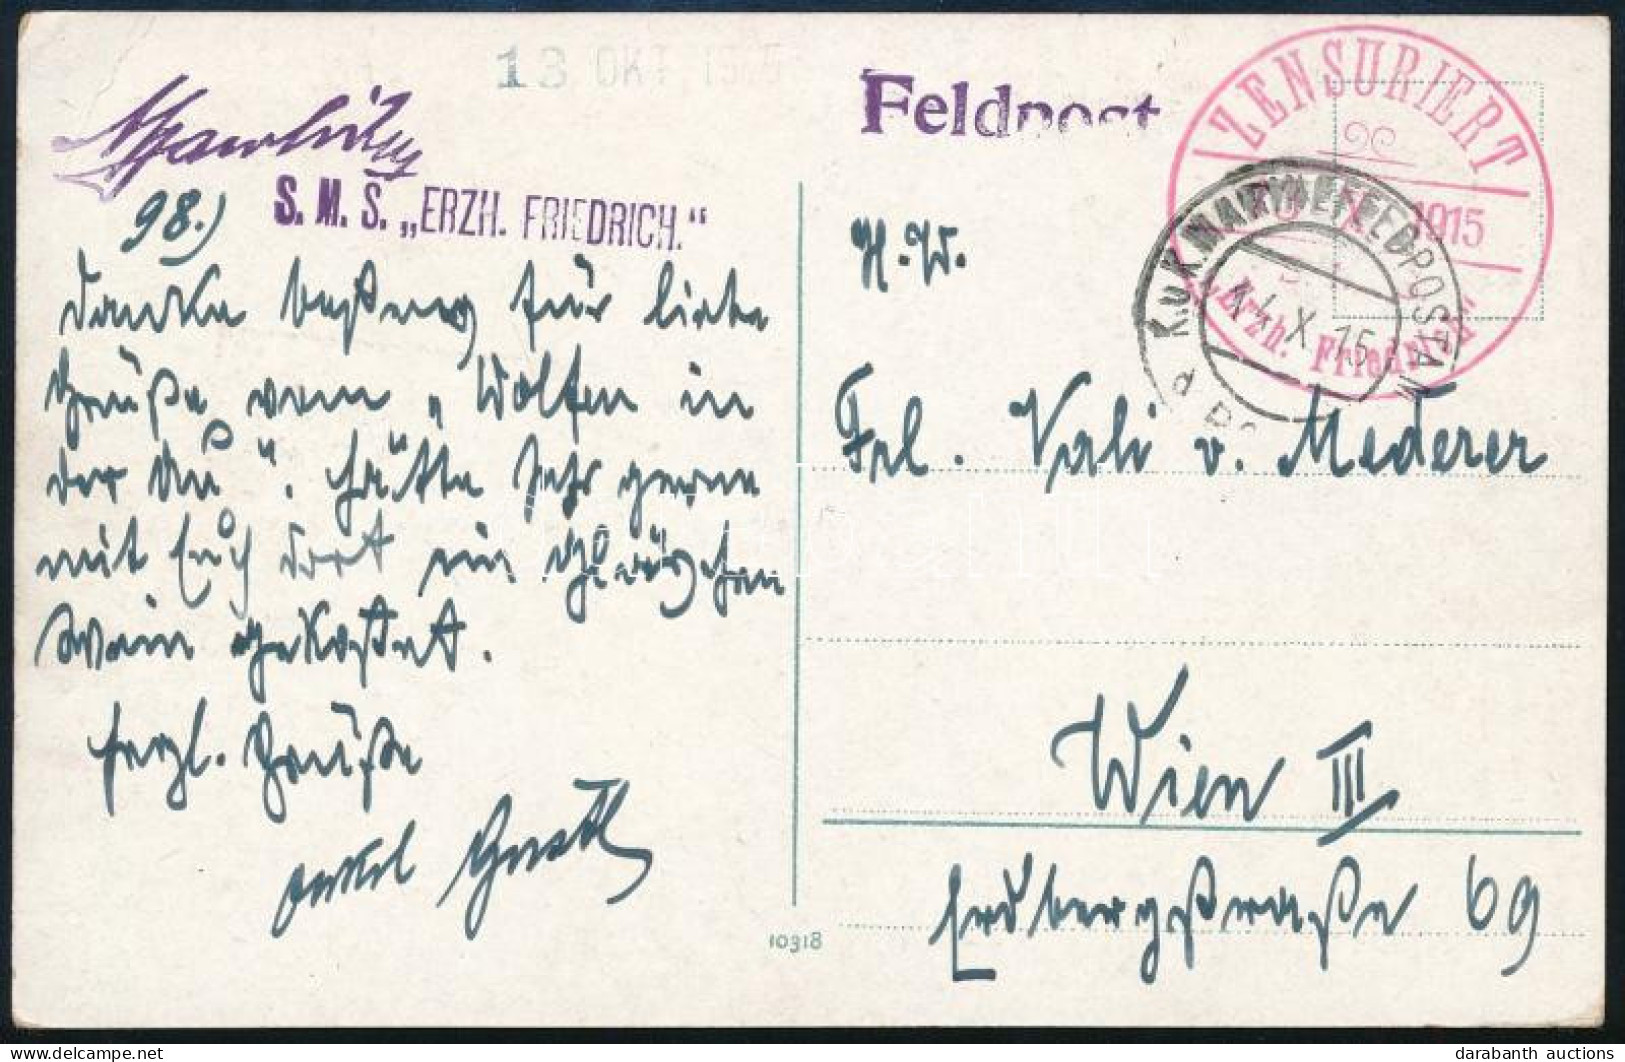 13 OKT. 1915
98.)
S. M. S. „ERZH. FRIEDRICH."
Danke bestens für liebe
Grüße vom „Wolfen in
der Au". Hätte sehr gerne
mit Euch dort ein Gläschen
Wein gekostet.
Herzl. Grüße
Onkel Gustl
Feldpost
ZENSURIERT
1915
„Erzh. Friedrich"
K.U.K. MARINEFELDPOSTAMT
14 X 15
H. W.
Frl. Vali v. Mederer
Wien III
Erdbergstraße 69
10318
darabanth auctions
delcampe.net